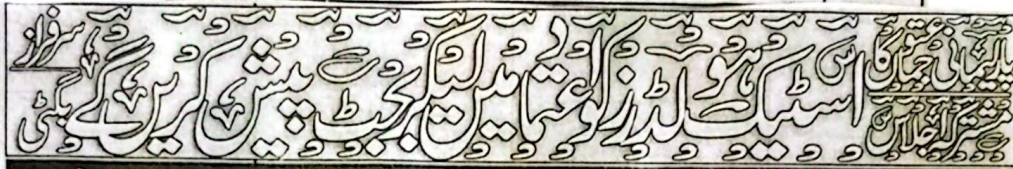 پارلیمانی جماعتوں کا
مشترکہ اجلاس
اسٹیک ہولڈرز کو اعتماد میں لیکر بجٹ پیش کریں گے
سرفراز
بگٹی